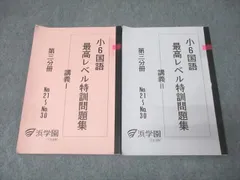 小6国語
最高レベル特訓問題集
講義Ⅰ
第三分冊
No.21〜No.30
浜学園
小6国語
最高レベル特訓問題集
講義Ⅱ
第三分冊
No.21〜No.30
浜学園